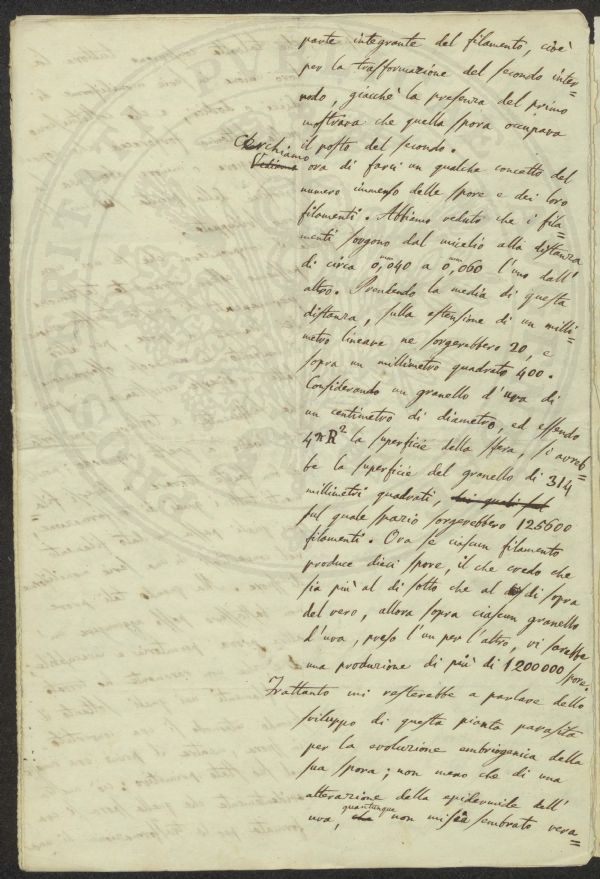 parte integrante del filamento, cioè
per la trasformazione del secondo inter=
nodo, giacchè la presenza del primo
mostrava che quella spora occupava
il posto del secondo.
Cerchiamo
Vediamo ora di farci un qualche concetto del
numero immenso delle spore e dei loro
filamenti. Abbiamo veduto che i fila=
menti sorgono dal micelio alla distanza
di circa 0,mm040 a 0,mm060 l'uno dall'
altro. Prendendo la media di questa
distanza, sulla estensione di un milli=
metro lineare ne sorgerebbero 20, e
sopra un millimetro quadrato 400.
Considerando un granello d'uva di
un centimetro di diametro, ed essendo
4πR² la superficie della sfera, si avreb=
be la superficie del granello di 314
millimetri quadrati
sul quale spazio sorgerebbero 125600
filamenti. Ora se ciascun filamento
produce dieci spore, il che credo che
sia più al di sotto che al di sopra
del vero, allora sopra ciascun granello
d'uva, preso l'un per l'altro, vi sarebbe
una produzione di più di 1200000 spore.
Frattanto mi resterebbe a parlare dello
sviluppo di questa pianta parasita
per la evoluzione embriogenica della
sua spora; non meno che di una
alterazione della epidermide dell'
quantunque
uva, che non mi sia sembrato vera=